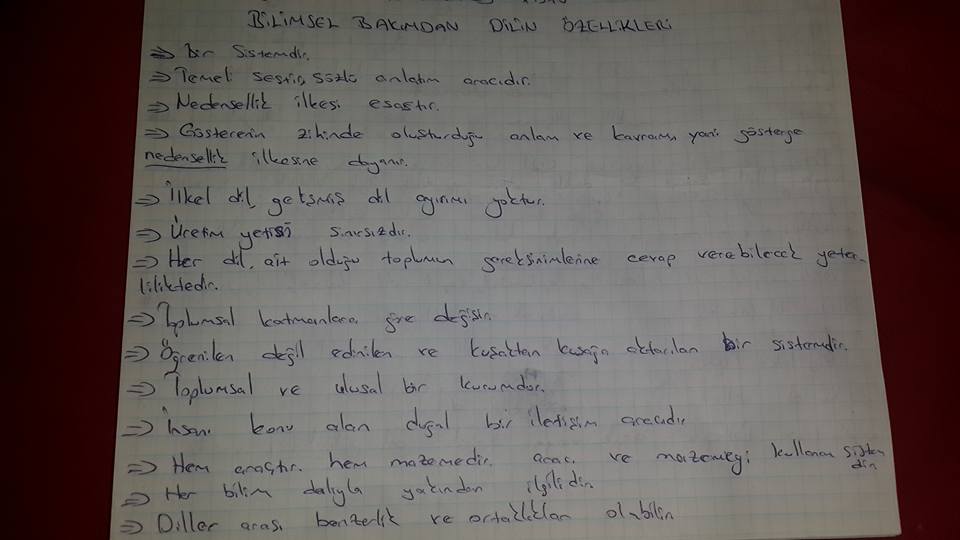 BİLİMSEL BAKIMDAN DİLİN ÖZELLİKLERİ
⇒ Bir sistemdir.
⇒ Temeli sestir, sözlü anlatım aracıdır.
⇒ Nedensellik ilkesi esastır.
⇒ Gösterenin zihinde oluşturduğu anlam ve kavramı yani gösterge
nedensellik ilkesine dayanır.
⇒ İlkel dil, gelişmiş dil ayırımı yoktur.
⇒ Üretim yetisi sınırsızdır.
⇒ Her dil, ait olduğu toplumun gereksinimlerine cevap verebilecek yeter-
liliktedir.
⇒ Toplumsal katmanlara göre değişir.
⇒ Öğrenilen değil edinilen ve kuşaktan kuşağa aktarılan bir sistemdir.
⇒ Toplumsal ve ulusal bir kurumdur.
⇒ İnsanı konu alan doğal bir iletişim aracıdır
⇒ Hem araçtır. hem mazemedir. aracı ve mazemeyi kullanan sistem
dir
⇒ Her bilim dalıyla yakından ilgilidir.
⇒ Diller arası benzerlik ve ortaklıklar olabilir